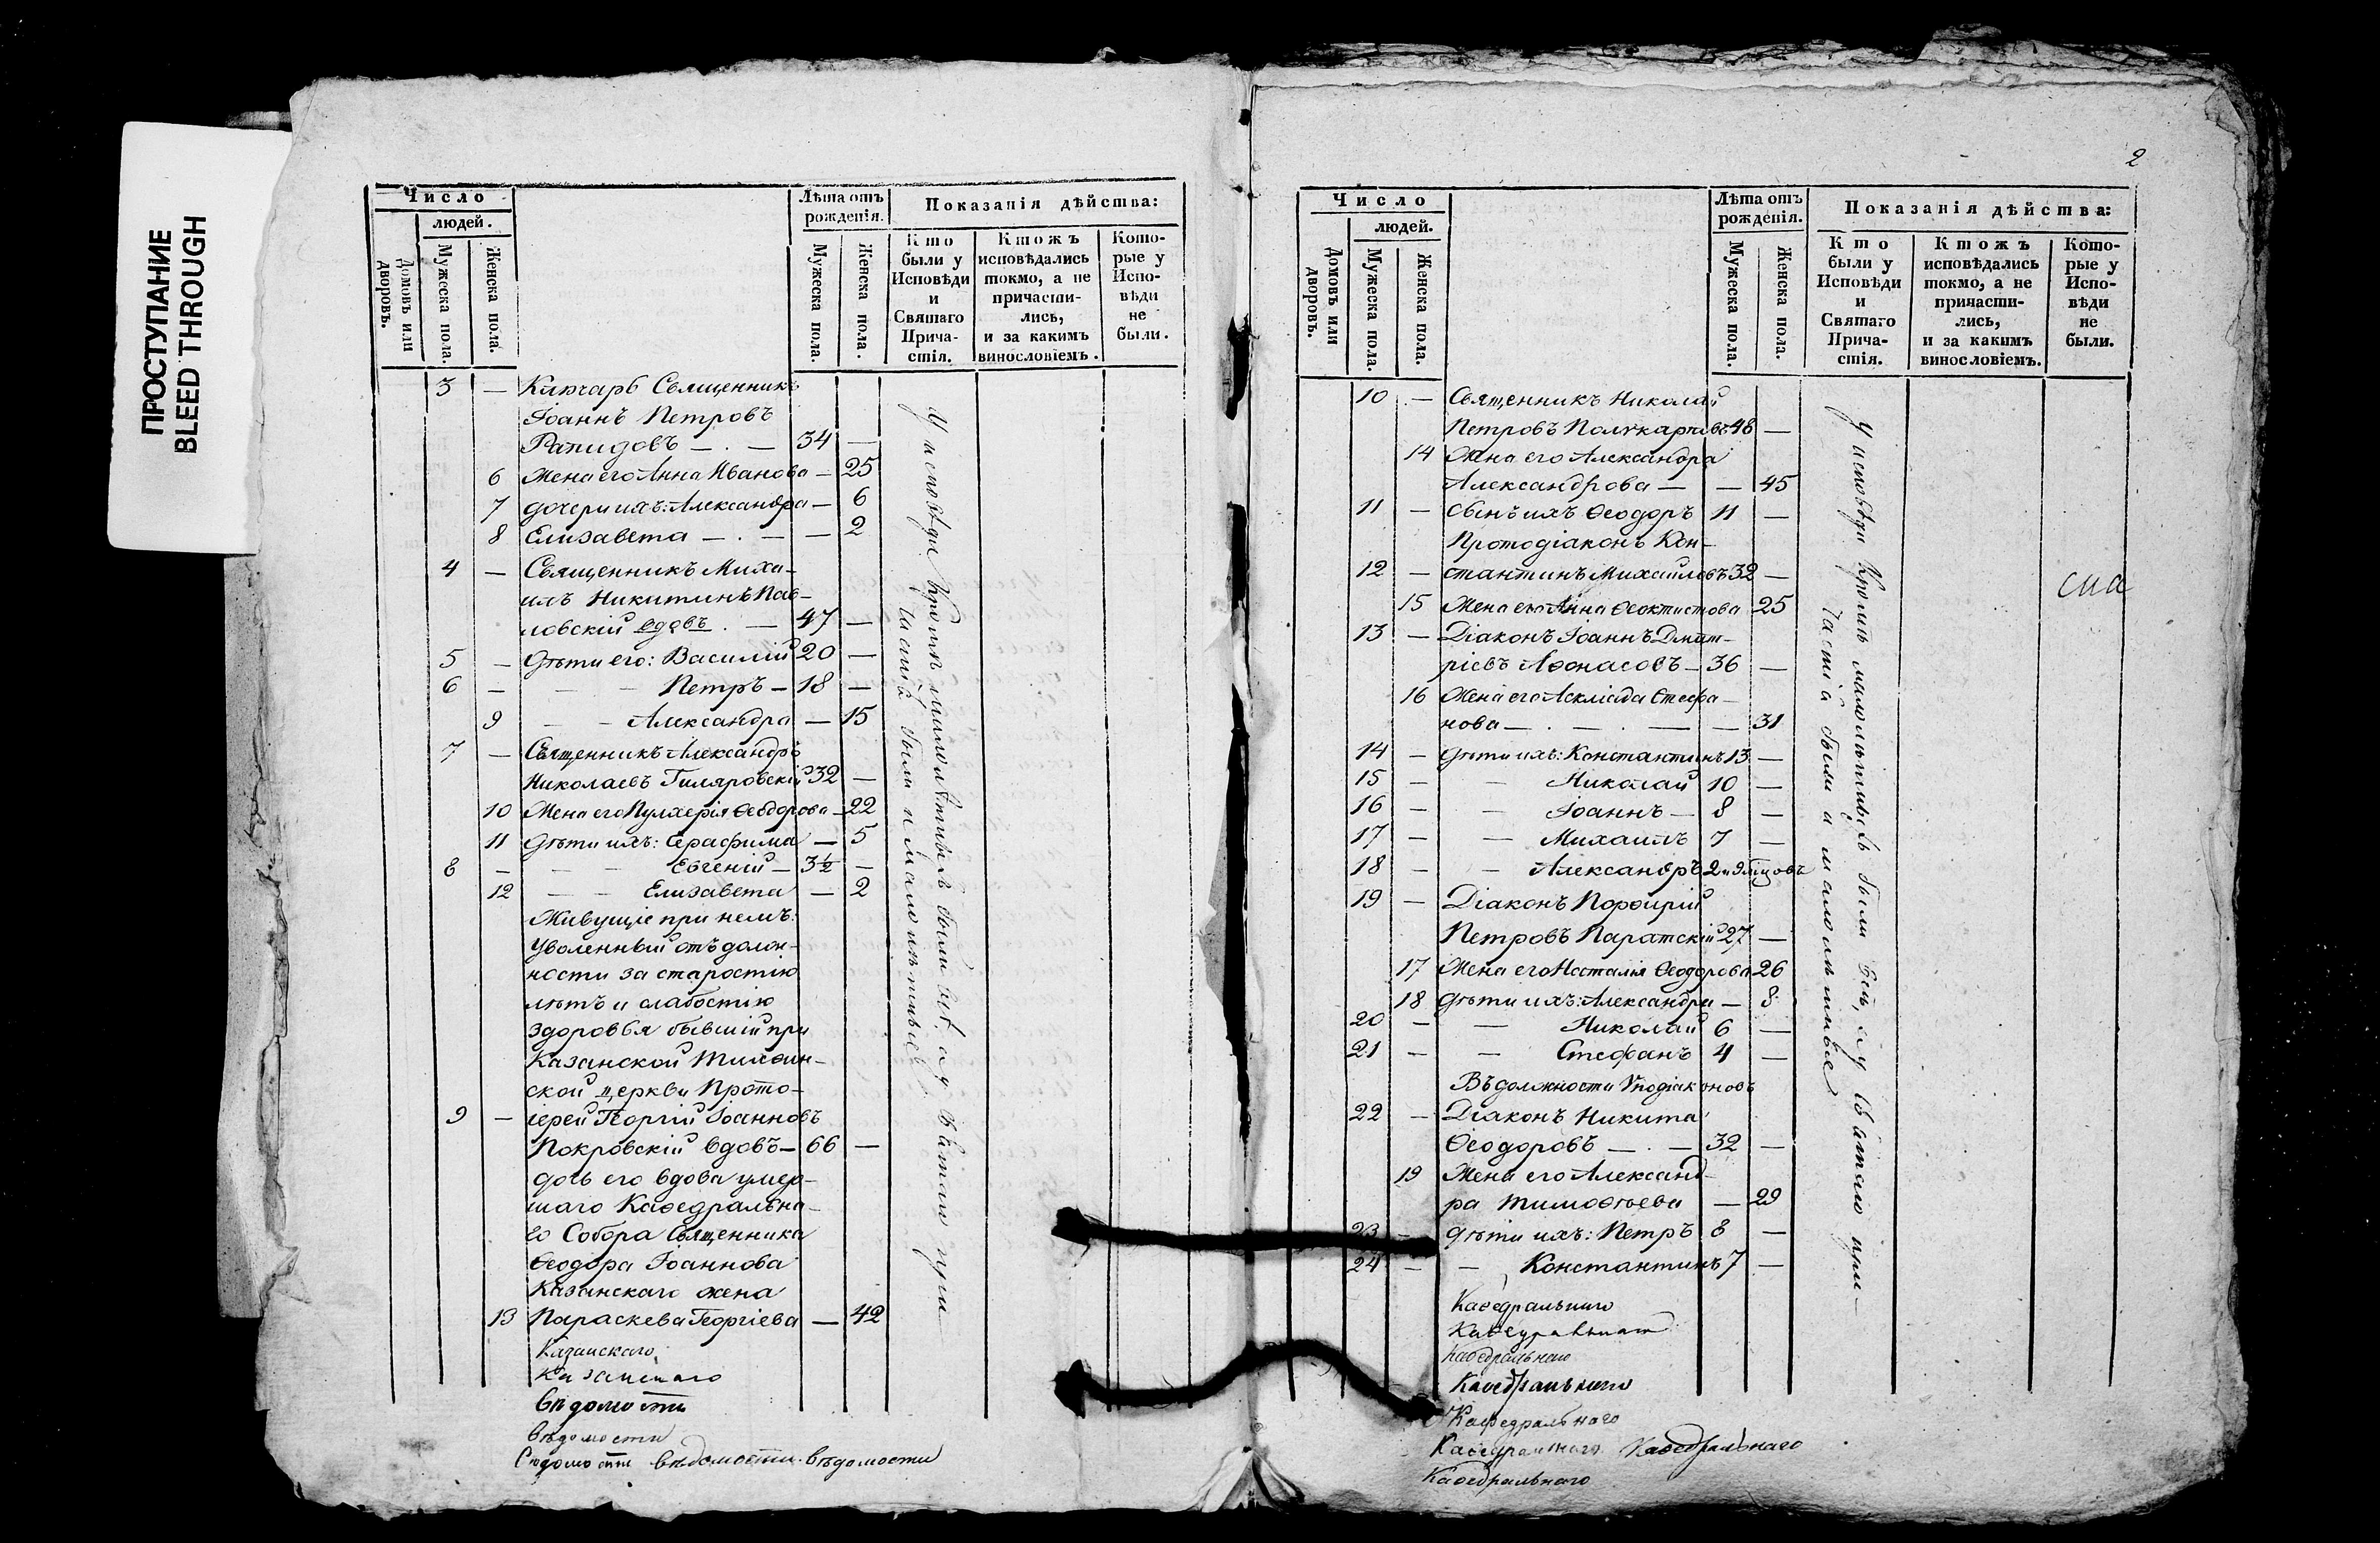 ПРОСТУПАНИЕ
BLEED THROUGH
Число
людей.
Домовъ или дворовъ.
Мужеска пола.
Женска пола.
Лѣта отъ рожденія.
Мужеска пола.
Женска пола.
Показанія дѣйства:
Кто были у Исповѣди и Святаго Прича-стія.
Ктожъ исповѣдались токмо, а не причасти-лись, и за какимъ винословіемъ.
Кото-рые у Испо-вѣди не были.
3 — Ключарь Священникъ
Іоаннъ Петровъ
Рапидовъ — . — 34 —
6 Жена его Анна Иванова — 25
7 дочери ихъ: Александра — 6
8 Елизавета — . — — 2
4 — Священникъ Миха-
илъ Никитинъ Пав-
ловскій вдовъ . — 47 —
5 — Дѣти его: Василій 20 —
6 — — — Петръ — 18 —
9 — — Александра — 15
7 — Священникъ Александръ
Николаевъ Гиляровскій 32 —
10 Жена его Пулхерія Ѳеодорова — 22
11 Дѣти ихъ: Серафима — 5
8 — — — Евгеній — 3½ —
12 — — Елизавета — 2
Живущіе при немъ:
Уволенный отъ долж-
ности за старостію
лѣтъ и слабостію
здоровья бывшій при
Казанской Тихвин-
ской церкви Прото-
9 — іерей Георгій Іоанновъ
Покровскій вдовъ — 66 —
дочь его вдова умер-
шаго Каѳедральна-
го Собора Священника
Ѳеодора Іоаннова
Казанскаго жена
13 Параскева Георгіева — 42
Казанскаго
Казанскаго
вѣдомости
вѣдомости
вѣдомости вѣдомости
У исповѣди кромѣ малолѣтныхъ были всѣ, а у Святаго при-
частія были и малолѣтные
2
Число
людей.
Домовъ или дворовъ.
Мужеска пола.
Женска пола.
Лѣта отъ рожденія.
Мужеска пола.
Женска пола.
Показанія дѣйства:
Кто были у Исповѣди и Святаго Прича-стія.
Ктожъ исповѣдались токмо, а не причасти-лись, и за какимъ винословіемъ.
Кото-рые у Испо-вѣди не были.
10 — Священникъ Николай
Петровъ Поликарповъ 48 —
14 Жена его Александра
Александрова — — 45
11 — Сынъ ихъ Ѳеодоръ 11 —
Протодіаконъ Кон-
12 — стантинъ Михайловъ 32 —
15 Жена его Анна Ѳеоктистова 25
13 — Діаконъ Іоаннъ Дмит-
ріевъ Аѳонасовъ — 36 —
16 Жена его Асклiада Стефа-
нова — . — . — — 31
14 — Дѣти ихъ: Константинъ 13 —
15 — — Николай 10 —
16 — — Іоаннъ — 8 —
17 — — Михаилъ 7 —
18 — — Александръ 2
19 — Діаконъ Порфирій
Петровъ Паратскій 27 —
17 Жена его Наталія Ѳеодорова 26
18 Дѣти ихъ: Александра — 8
20 — — Николай 6 —
21 — — Стефанъ 4 —
Въ должности Уподіаконовъ
22 — Діаконъ Никита
Ѳеодоровъ — . — 32 —
19 Жена его Александ-
ра Тимоѳѣева — 29
23 — дѣти ихъ: Петръ 8 —
24 — — Константинъ 7 —
Каѳедральнаго
Каѳедральнаго
Каѳедральнаго
Каѳедральнаго
Кафедральнаго
Каѳедральнаго Каѳедральнаго
Каѳедральнаго
У исповѣди кромѣ малолѣтныхъ были всѣ, а у Святаго при-
частія были и малолѣтные